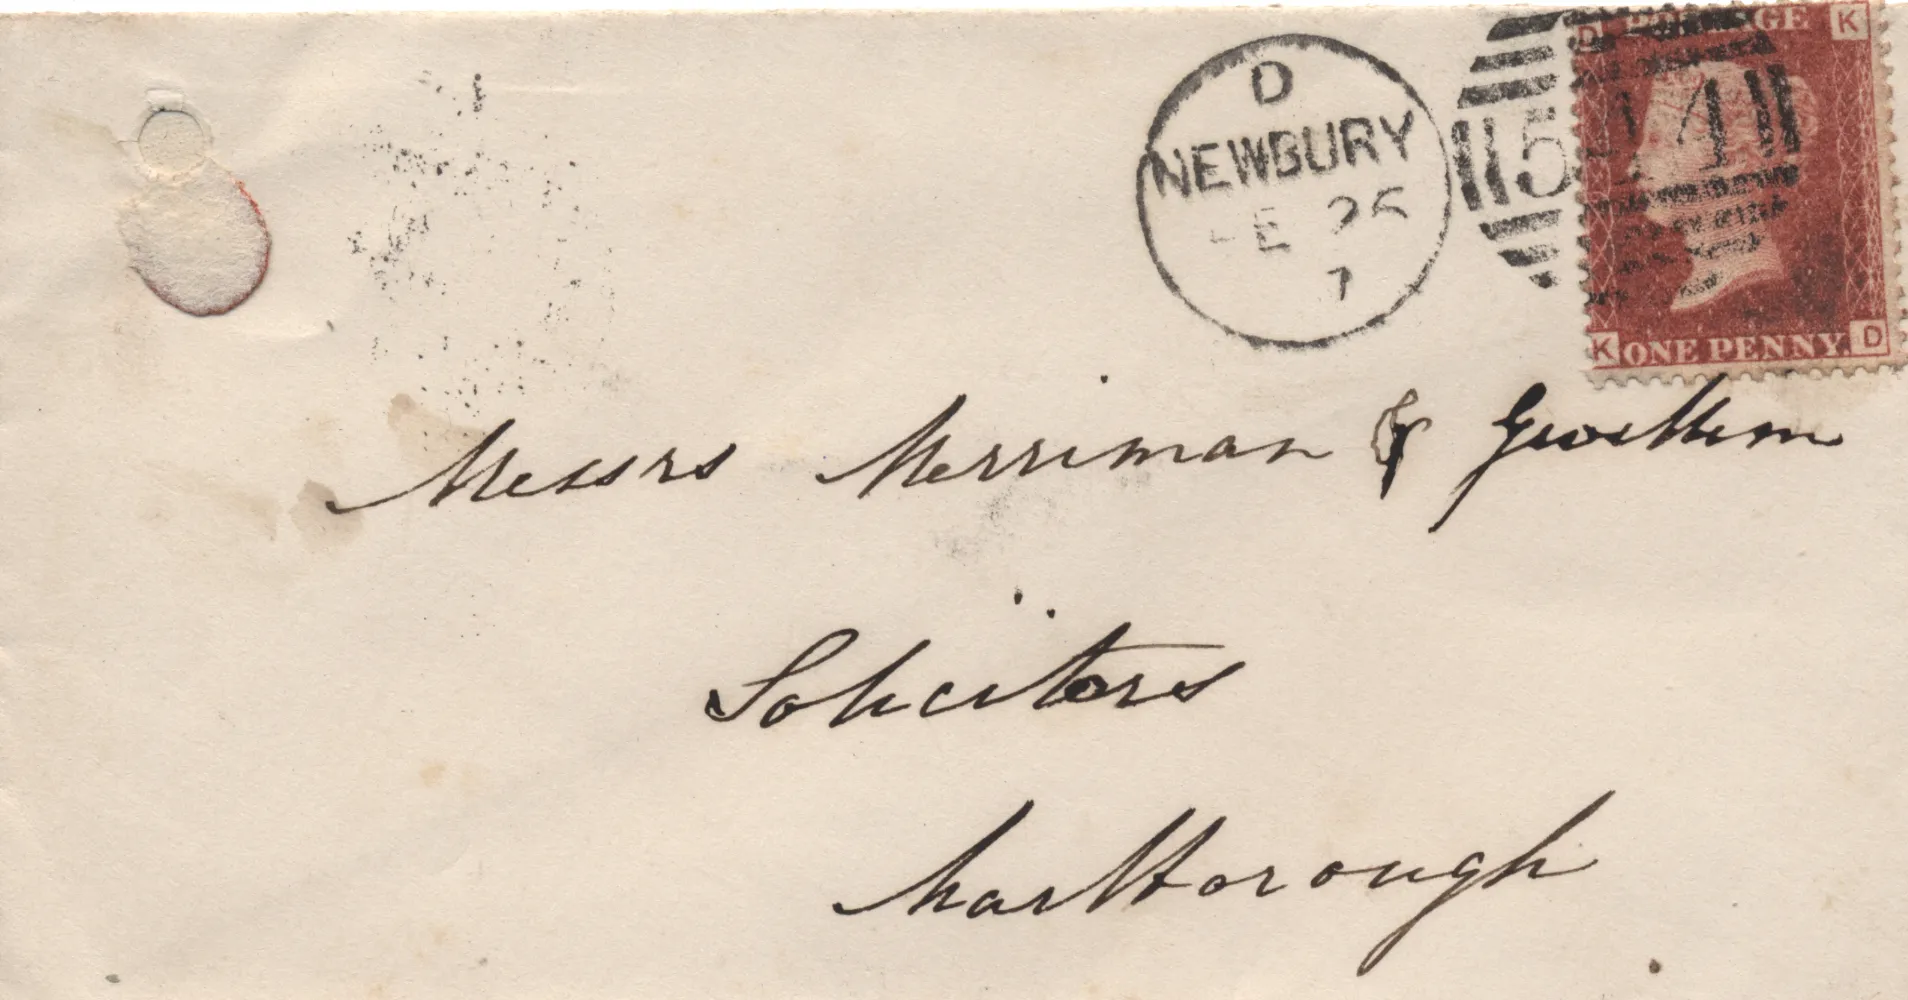 D
NEWBURY
FE 25
7
544
D POSTAGE K
K ONE PENNY. D
Messrs Merriman & Gwillim
Solicitors
Marlborough